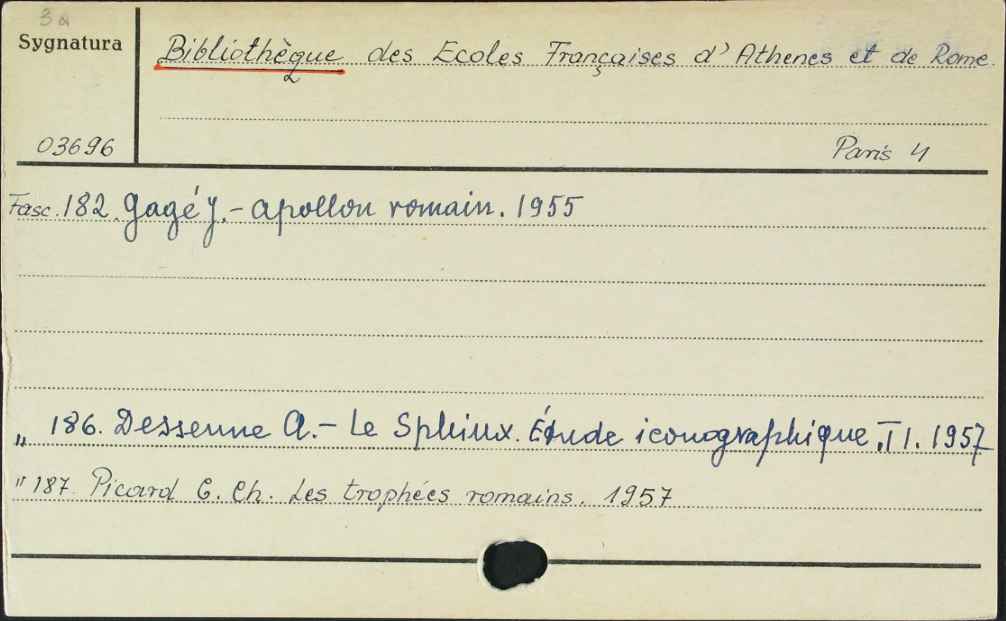 3a
Sygnatura
Bibliothèque des Ecoles Françaises d'Athenes et de Rome.
03696
Paris 4
Fasc. 182. Gagé J. - Apollon romain. 1955
„ 186. Dessenne A. - Le Sphinx. Étude iconographique. T I. 1957
" 187. Picard G. Ch. Les trophées romains. 1957